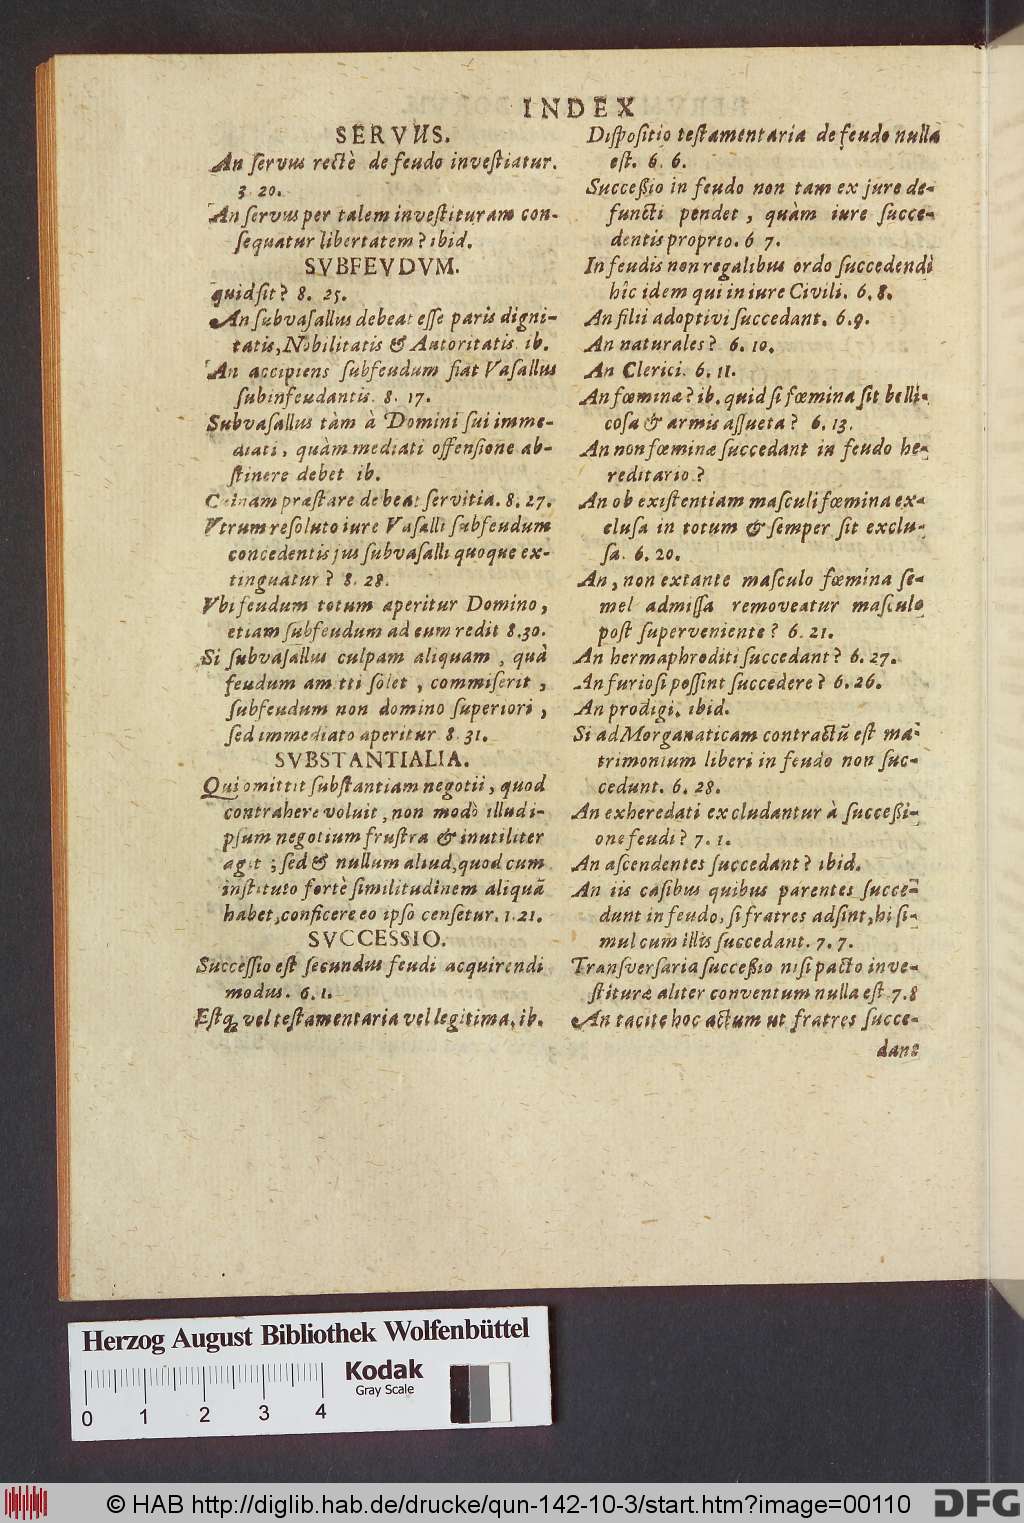 INDEX
SERVUS.
An ſervus rectè de feudo inveſtiatur.
3. 20.
An ſervus per talem inveſtituram con-
ſequatur libertatem? ibid.
SVBFEVDVM.
quid ſit? 8. 25.
An ſubvaſallus debeat eſſe paris digni-
tatis, Nobilitatis & Autoritatis. ib.
An accipiens ſubfeudum fiat Vaſallus
ſubinfeudantis. 8. 17.
Subvaſallus tàm à Domini ſui imme-
diati, quàm mediati offenſione ab-
ſtinere debet ib.
præſtare debeat ſervitia. 8. 27.
Vtrum reſoluto iure Vaſalli ſubfeudum
concedentis jus ſubvaſalli quoque ex-
tinguatur? 8. 28.
Vbi feudum totum aperitur Domino,
etiam ſubfeudum ad eum redit 8.30.
Si ſubvaſallus culpam aliquam, quà
feudum amitti ſolet, commiſerit,
ſubfeudum non domino ſuperiori,
ſed immediato aperitur 8. 31.
SVBSTANTIALIA.
Qui omittit ſubſtantiam negotii, quod
contrahere voluit, non modò illud i-
pſum negotium fruſtra & inutiliter
agit; ſed & nullum aliud, quod cum
inſtituto fortè ſimilitudinem aliquã
habet, conficere eo ipſo cenſetur. 1. 21.
SVCCESSIO.
Succeſſio eſt ſecundus feudi acquirendi
modus. 6. 1.
Eſtq; vel teſtamentaria vel legitima. ib.
Diſpoſitio teſtamentaria de feudo nulla
eſt. 6. 6.
Succeßio in feudo non tam ex jure de-
functi pendet, quàm iure ſucce-
dentis proprio. 6 7.
In feudis non regalibus ordo ſuccedendi
hîc idem qui in iure Civili. 6. 8.
An filii adoptivi ſuccedant. 6.9.
An naturales? 6. 10.
An Clerici. 6. 11.
An fœminæ? ib. quid ſi fœmina ſit belli-
coſa & armis aſſueta? 6. 13.
An non fœminæ ſuccedant in feudo he-
reditario?
An ob exiſtentiam maſculi fœmina ex-
cluſa in totum & ſemper ſit exclu-
ſa. 6. 20.
An, non extante maſculo fœmina ſe-
mel admiſſa removeatur maſculo
poſt ſuperveniente? 6. 21.
An hermaphroditi ſuccedant? 6. 27.
An furioſi poſſint ſuccedere? 6. 26.
An prodigi. ibid.
Si ad Morganaticam contractũ eſt ma-
trimonium liberi in feudo non ſuc-
cedunt. 6. 28.
An exheredati excludantur à ſucceßi-
one feudi? 7. 1.
An aſcendentes ſuccedant? ibid.
An iis caſibus quibus parentes ſucce-
dunt in feudo, ſi fratres adſint, hi ſi-
mul cum illis ſuccedant. 7. 7.
Tranſverſaria ſucceßio niſi pacto inve-
ſtituræ aliter conventum nulla eſt 7.8
An tacite hoc actum ut fratres ſucce-
dant
Herzog August Bibliothek Wolfenbüttel
Kodak
Gray Scale
0 1 2 3 4
© HAB http://diglib.hab.de/drucke/qun-142-10-3/start.htm?image=00110
DFG